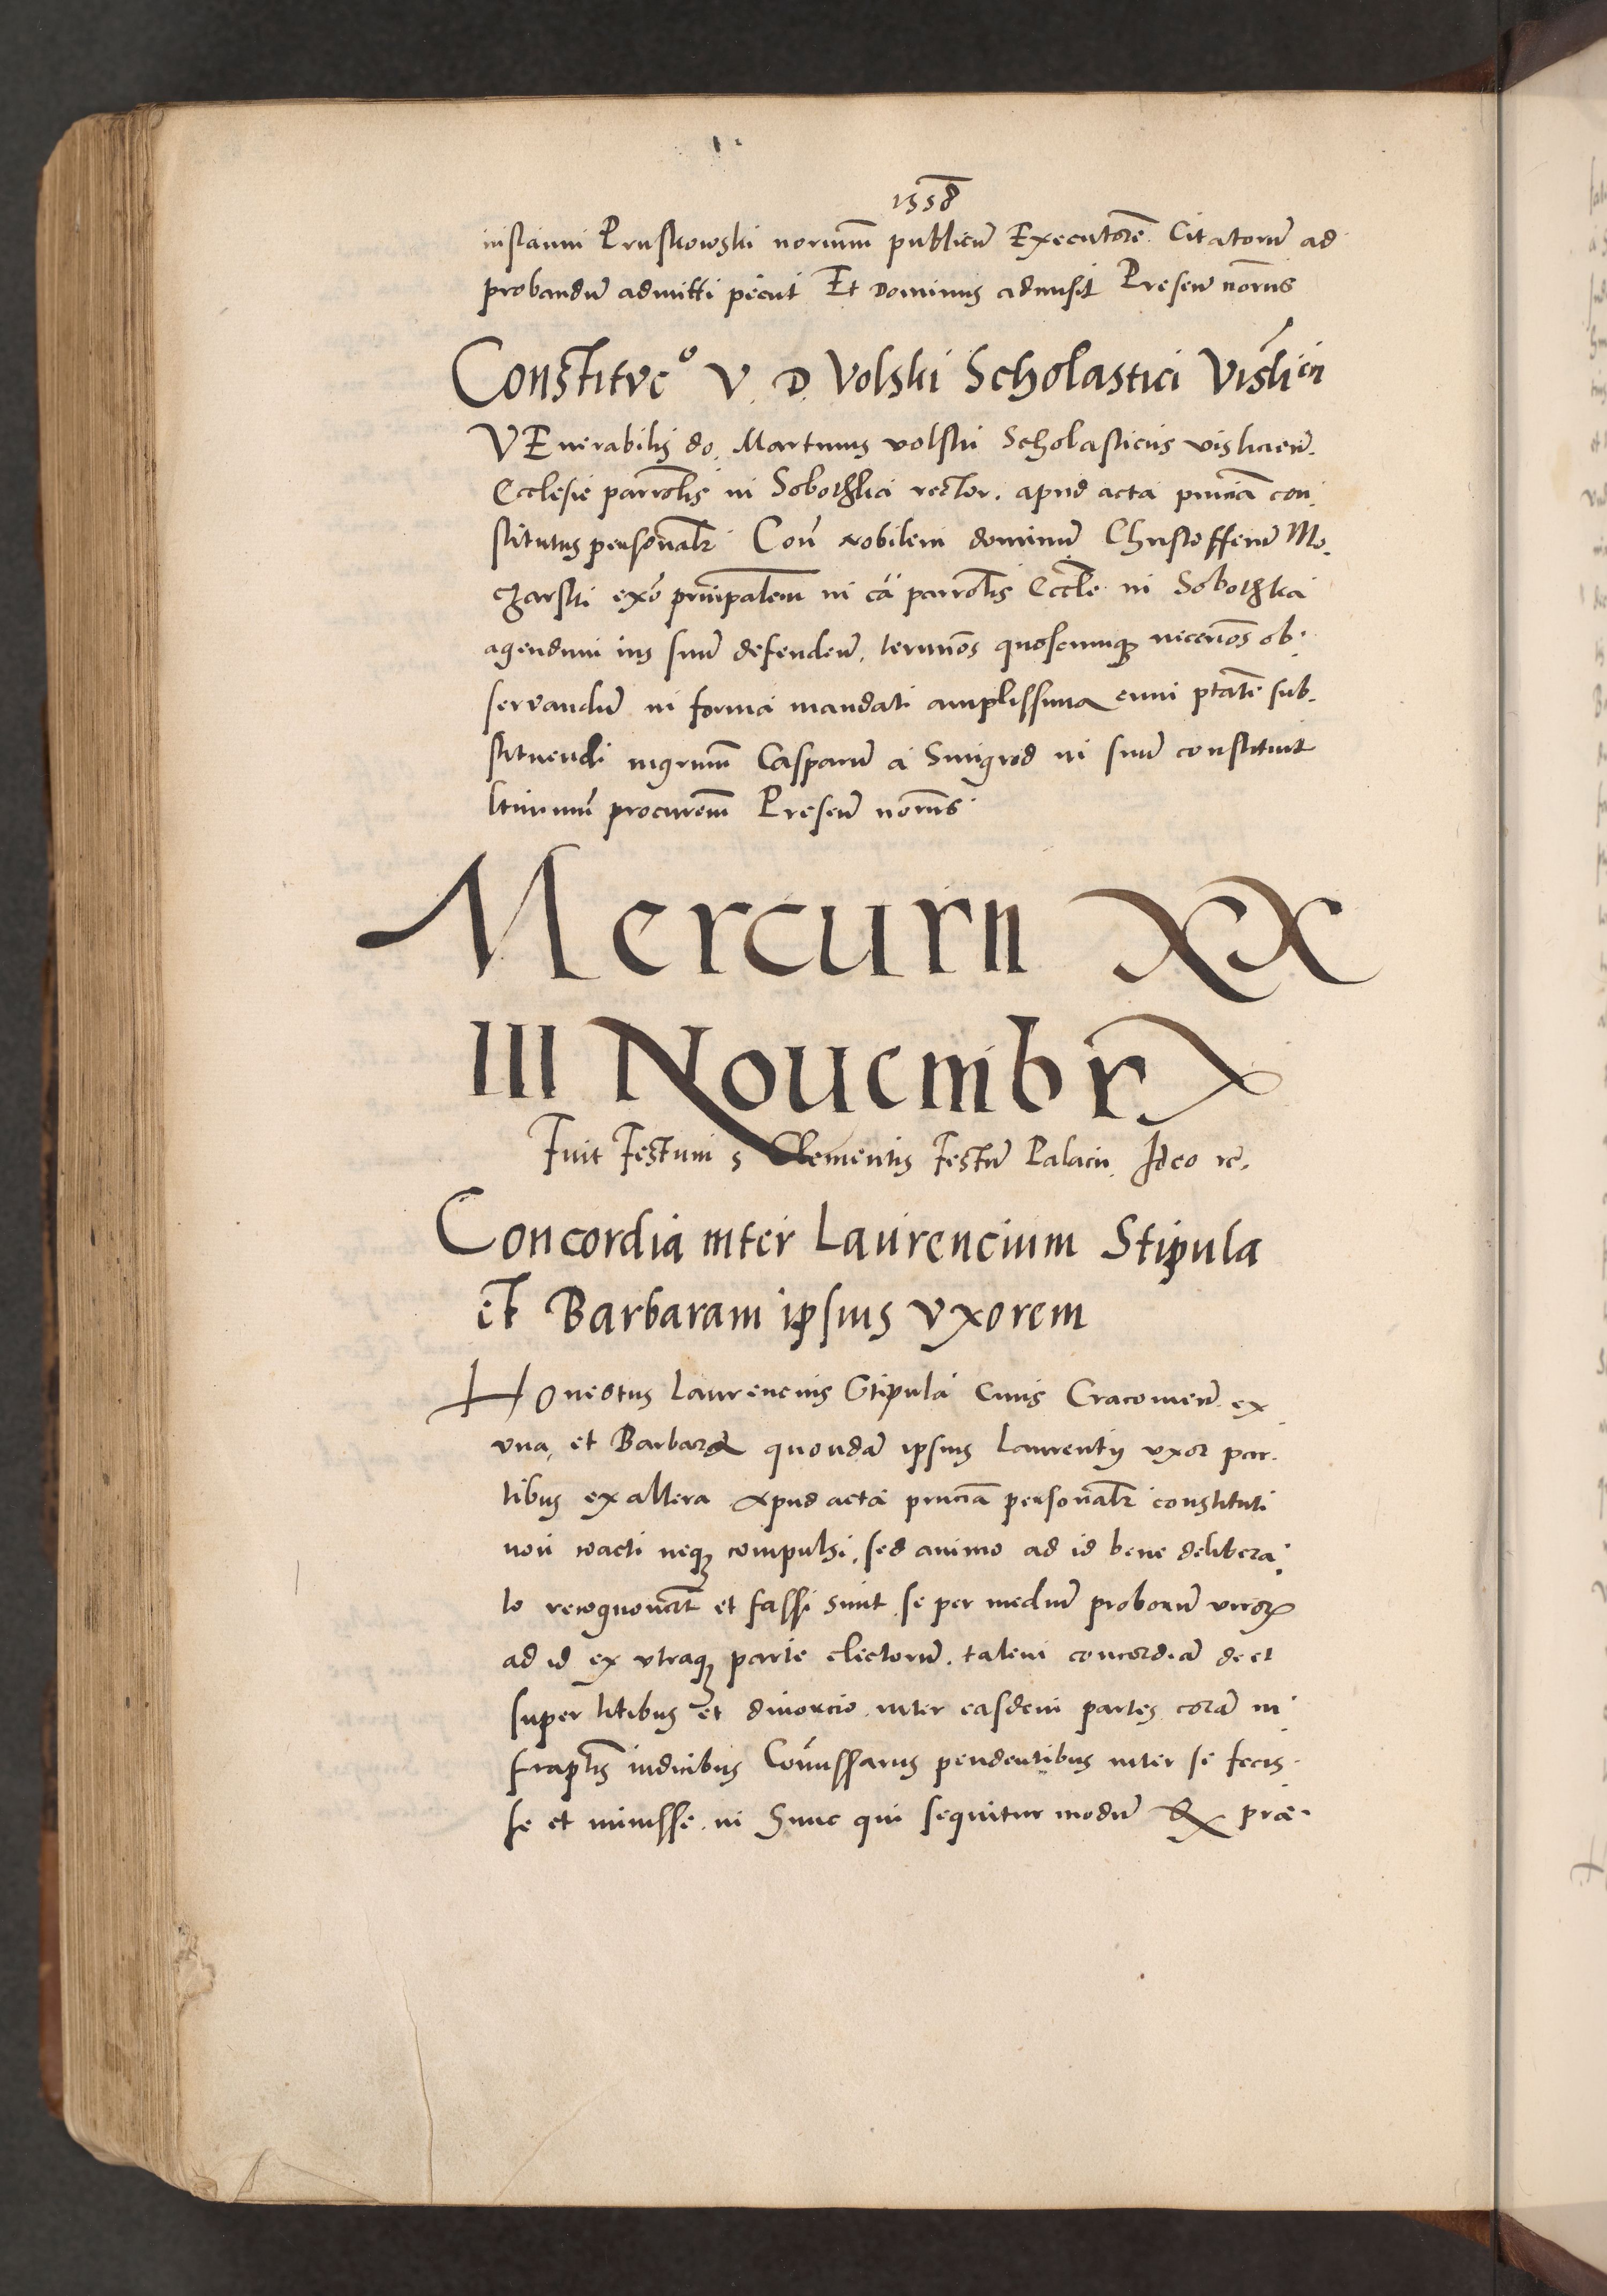 1558
instanni Pruskowski norium publicu͞ Executore͞ Citatoru͞ ad
probandu͞ admitti peciit Et Dominus admisit Presen͞ no͞rus
Constituc͞o V. D. Volski Scholastici Vislicin͞
VEnerabilis do. Martinus volski Scholasticus visliacen͞.
Ecclesie parro͞lis in Sobothka rector. apud acta pn͞cia͞ con
stitutus persona͞lr Con͞ nobilem dominu͞ Christofferu͞ Mo.
charski exo͞ principalem in ca͞ parro͞lis Eccle͞ in Sobothka
agendum ius suu͞ defenden͞. termi͞nos quoscunq; necen͞os ob.
servandu͞ in forma mandati amplissima cum p͞tate sub.
stituendi mgrum͞ Casparu͞ a Smigrod in suu͞ constituit
l͞timum procurem͞ Presen͞ no͞rus
Mercurii XX
III Nouembr
Fuit Festum s Clementis Festu͞ Palacii. Ideo rc͞.
Concordia inter Laurencium Stipula
et Barbaram ipsius vxorem
Honestus Laurencius Stipula Civis Cracovien͞. ex
vna, et Barbara quonda͞ ipsius Laurentij vxor par.
tibus ex altera Apud acta pn͞cia͞ persona͞lr constituti
non coacti neq; compulsi, sed animo ad id bene delibera
to recognover͞t et fassi sunt se per mediu͞ proboru͞ viror͞
ad id ex vtraq; parte electoru͞. talem concordia͞ de et
super litibus et divorcio inter easdem partes cora͞ in
frap͞tis iudicibus Com͞issariis pendentibus inter se fecis.
se et iniuisse in hunc qui sequitur modu͞ Q prae.